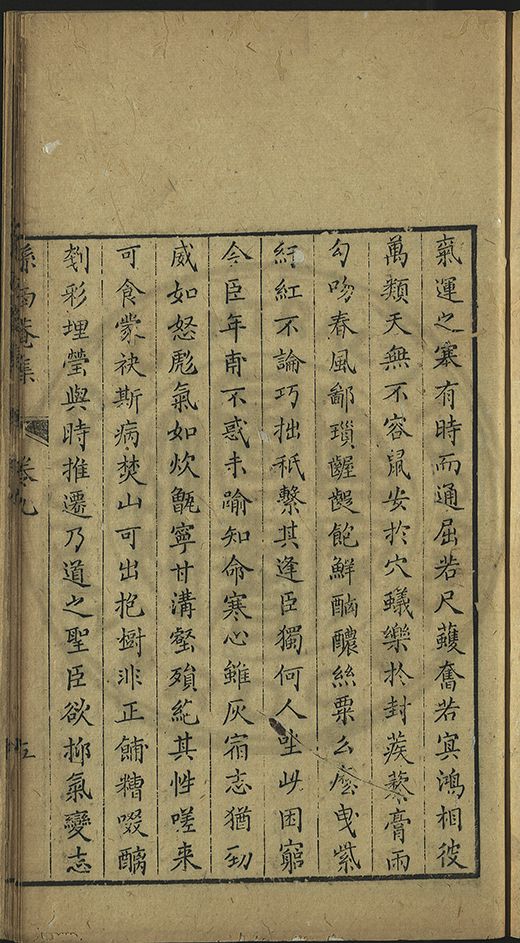 氣運之塞有時而通屈若尺蠖奮若宾鴻相彼
萬類天無不容鼠安於穴蟻樂於封蒺藜膏雨
勾吻春風鄙瑣齷齪飽鮮酗醲絲粟么麽曳紫
紆紅不論巧拙秖繫其逢臣獨何人坐此困窮
今臣年甫不惑未踰知命寒心雖灰宿志猶勁
威如怒彪氣如炊甑寧甘溝壑殞紽其性嗟来
可食蒙袂斯病焚山可出抱樹非正餔糟啜醨
剗彩埋瑩與時推遷乃道之聖臣欲抑氣變志
菴集
卷九